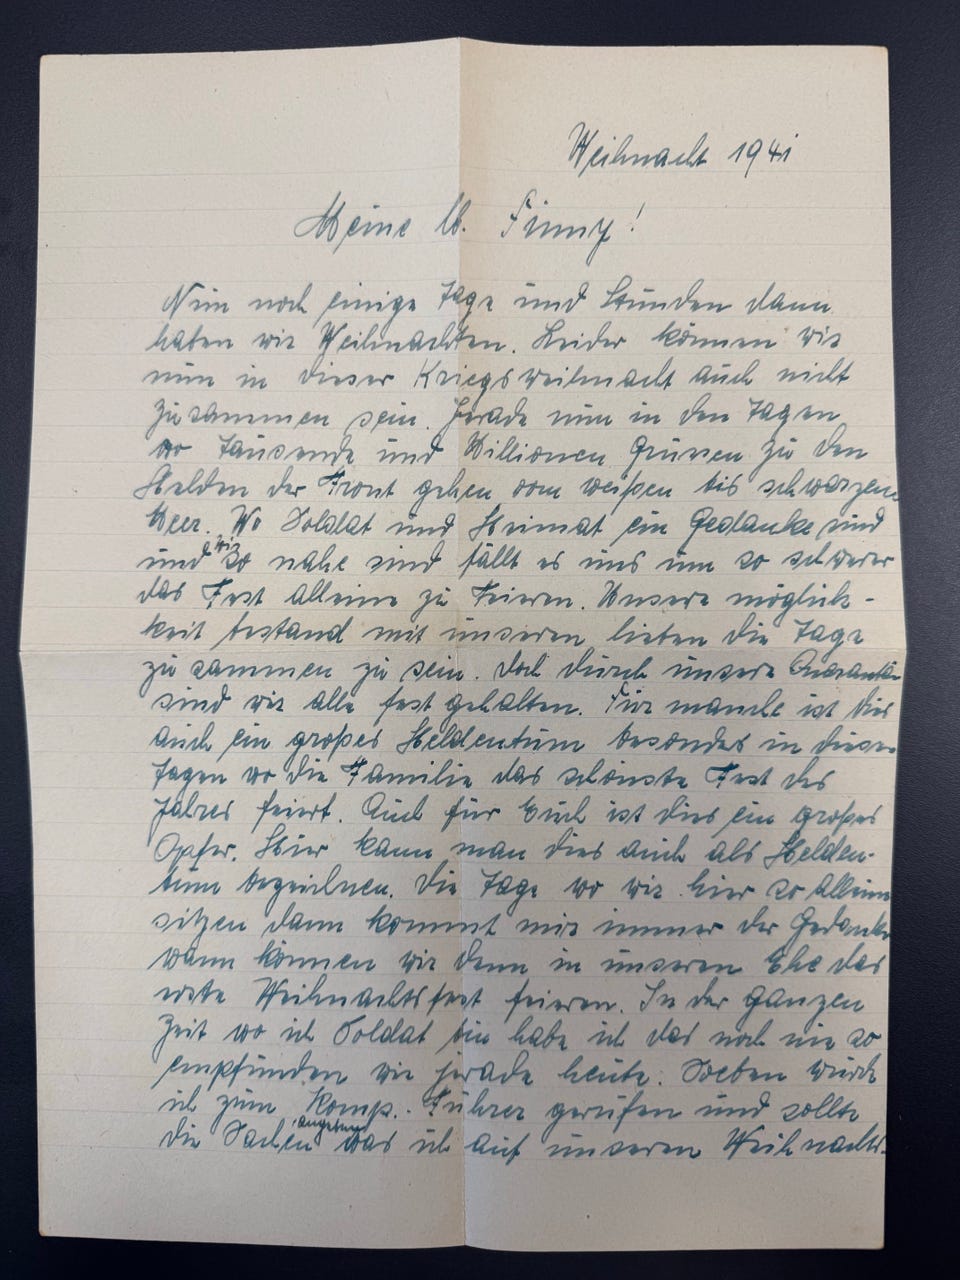 Weihnacht 1941
Meine lb. Finny!
Nun noch einige Tage und Stunden dann
haben wir Weihnachten. Leider können wir
nun in dieser Kriegsweihnacht auch nicht
zusammen sein. Gerade nun in den Tagen
wo Tausende und Millionen Grüssen zu den
Helden der Front gehen vom weißen bis schwarzen
Meer. Wo Soldat und Heimat ein Gedanke sind
und wir so nahe sind fällt es uns um so schwerer
das Fest alleine zu Feieren. Unsere möglich-
keit bestand mit unseren lieben die Tage
zu sammen zu sein. Doch durch unsere
sind wir alle fest gehalten. Für manche ist dies
auch ein großes Heldentum besonders in diesen
Tagen wo die Familie das schönste Fest des
Jahres feiert. Auch für Euch ist dies ein großes
Opfer. Hier kann man dies auch als Helden-
tum bezeichnen. Die Tage wo wir hier so alleine
sitzen dann kommt mir immer der Gedanke
wann können wir denn in unseren Ehe das
erste Weihnachtsfest feieren. In der ganzen
Zeit wo ich Soldat bin habe ich das noch nie so
empfunden wie gerade heute. Soeben wurde
ich zum Komp.-Führer gerufen und sollte
die Sachen angeben was ich auf unseren Weihnachts-